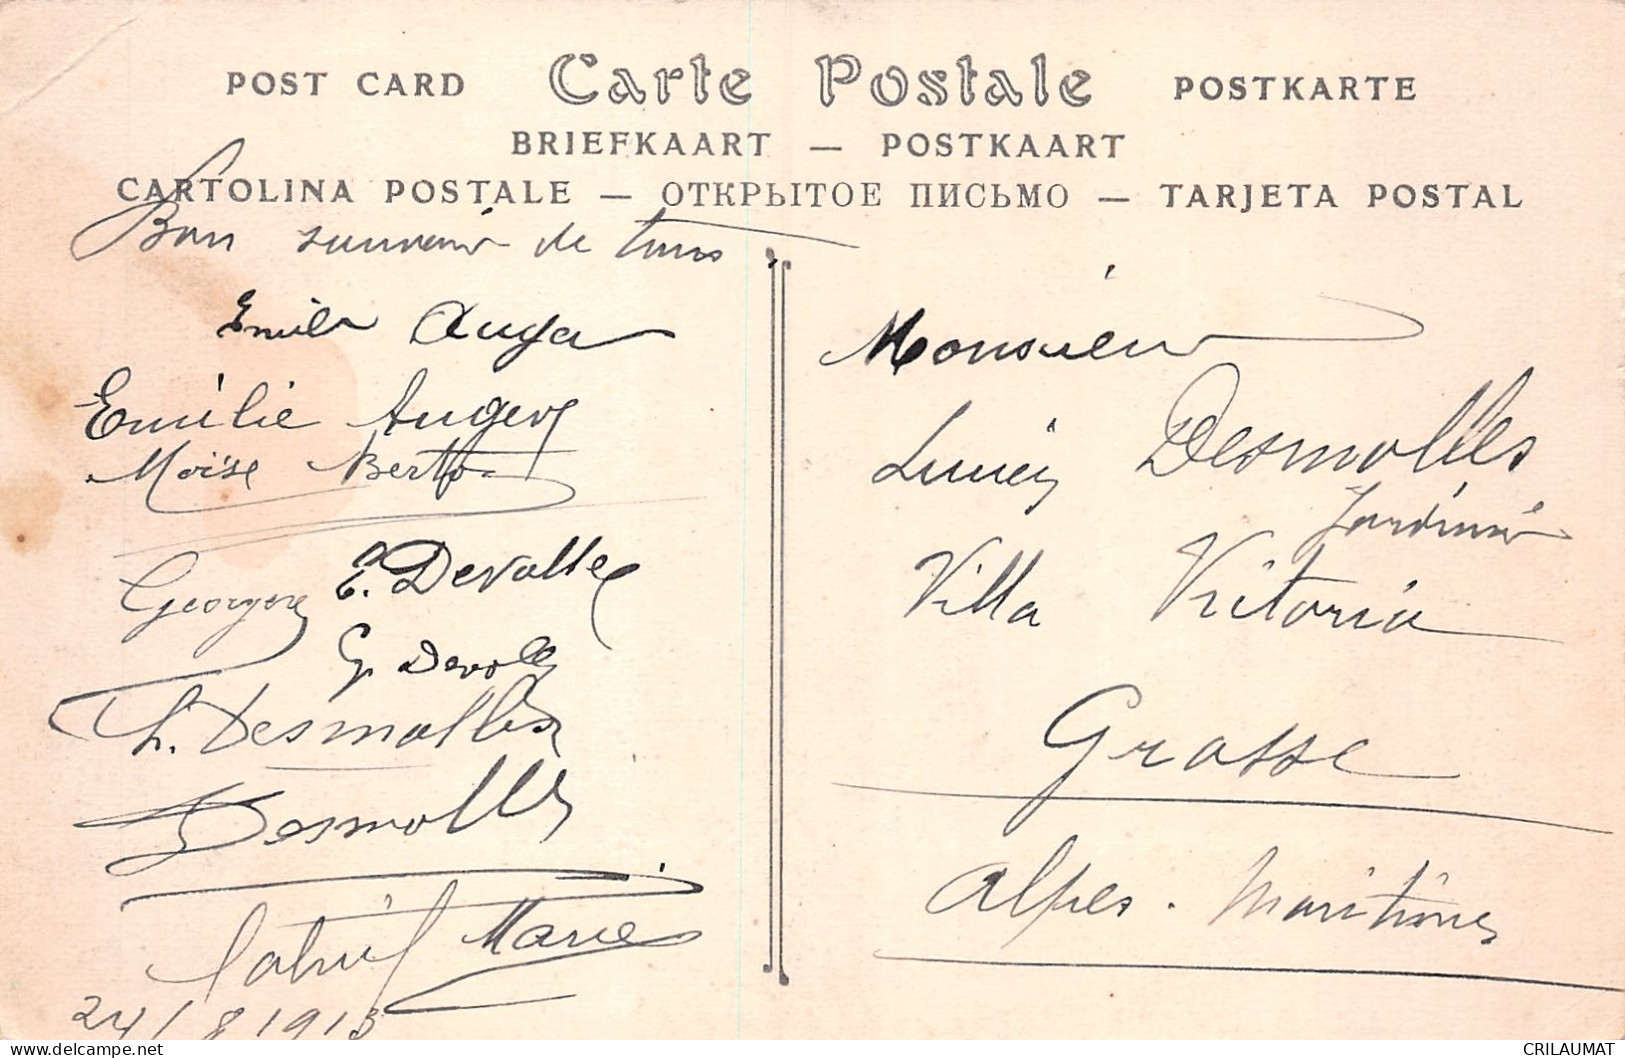 POST CARD Carte Postale POSTKARTE
BRIEFKAART — POSTKAART
CARTOLINA POSTALE — ОТКРЫТОЕ ПИСЬМО — TARJETA POSTAL
Bon souvenir de tous
Emile Auger
Emilie Auger
Moïse Berto
Georges E. Devolle
G. Devolle
L. Desmolles
Desmolles
Gabriel Marie
24/8 1913
Monsieur
Lucien Desmolles
Jardinier
Villa Vitoria
Grasse
Alpes. Maritimes
CRILAUMAT